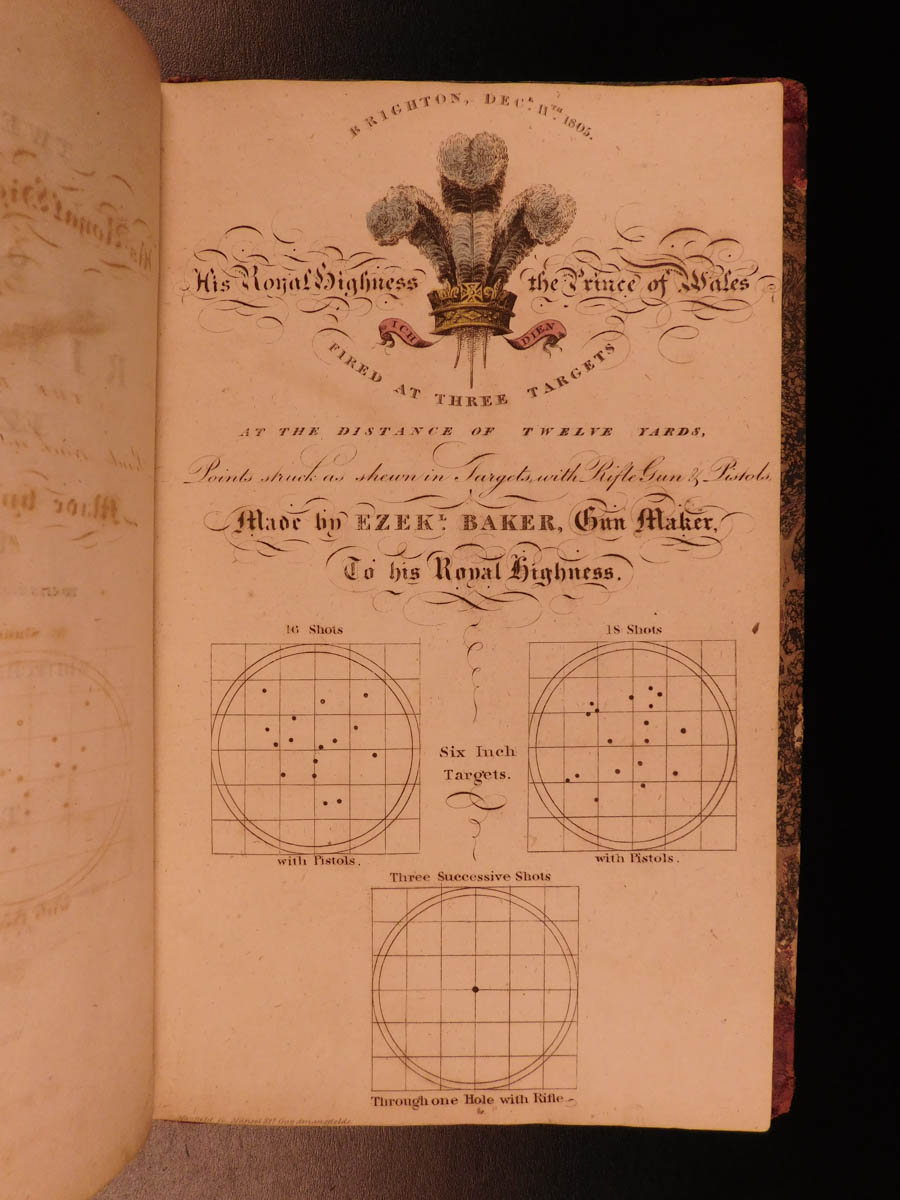 BRIGHTON, DECR. 11TH. 1805.
His Royal Highness the Prince of Wales
ICH DIEN
FIRED AT THREE TARGETS
AT THE DISTANCE OF TWELVE YARDS,
Points struck as shewn in Targets, with Rifle Gun & Pistols,
Made by EZEKL. BAKER, Gun Maker,
To his Royal Highness.
16 Shots
18 Shots
Six Inch
Targets.
with Pistols.
with Pistols.
Three Successive Shots
Through one Hole with Rifle